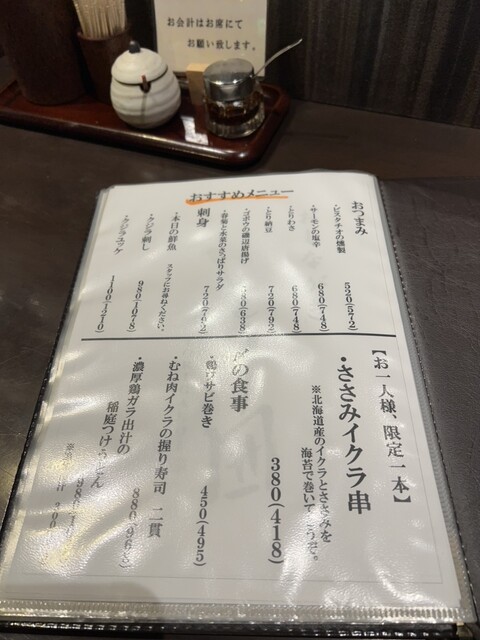 お会計はお席にて
お願い致します。
おすすめメニュー
おつまみ
・ピスタチオの燻製 520(572)
・サーモンの塩辛 680(748)
・とりわさ 680(748)
・とり納豆 720(792)
・ゴボウの磯辺唐揚げ 580(638)
・春菊と水菜のさっぱりサラダ 720(762)
刺身
・本日の鮮魚 スタッフにお尋ねください。
・クジラ刺し 980(1078)
・クジラユッケ 1100(1210)
【お一人様、限定一本】
・ささみイクラ串
※北海道産のイクラとささみを
海苔で巻いて
380(418)
の食事
・鶏サビ巻き 450(495)
・むね肉イクラの握り寿司 二貫
880(968)
・濃厚鶏ガラ出汁の
稲庭つけ